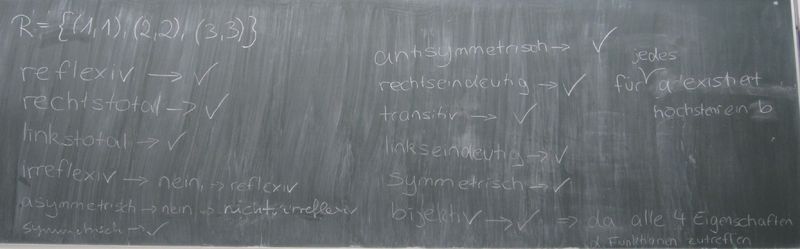 R = {(1,1), (2,2), (3,3)}
reflexiv → ✓
rechtstotal → ✓
linkstotal → ✓
irreflexiv → nein, → reflexiv
asymmetrisch → nein → nicht irreflexiv
symmetrisch → ✓
antisymmetrisch → ✓
rechtseindeutig → ✓
jedes
für a existiert
höchstens ein b
transitiv → ✓
linkseindeutig → ✓
symmetrisch → ✓
bijektiv → ✓ ⇒ da alle 4 Eigenschaften
Funktionen zutreffen